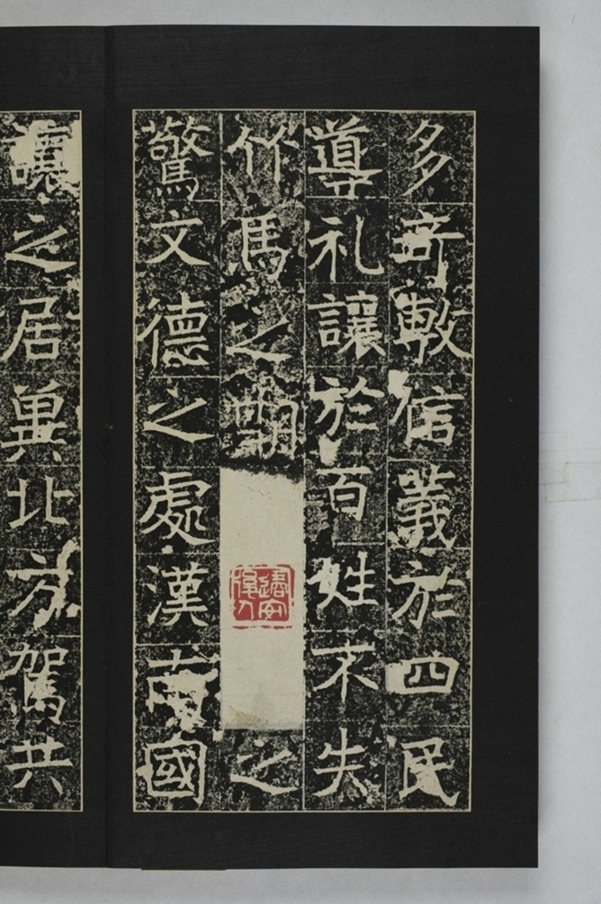 多奇敷信義於四民
導礼讓於百姓不失
竹馬之期之
驚文德之處漢南國
讓之居冀北方駕共